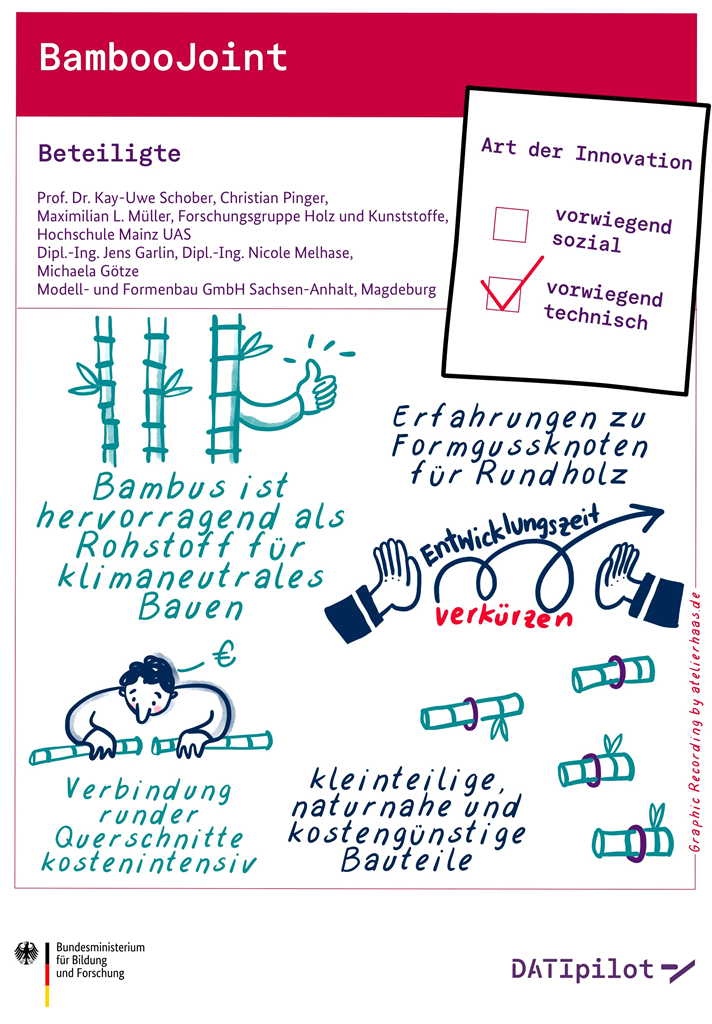 BambooJoint
Beteiligte
Prof. Dr. Kay-Uwe Schober, Christian Pinger,
Maximilian L. Müller, Forschungsgruppe Holz und Kunststoffe,
Hochschule Mainz UAS
Dipl.-Ing. Jens Garlin, Dipl.-Ing. Nicole Melhase,
Michaela Götze
Modell- und Formenbau GmbH Sachsen-Anhalt, Magdeburg
Art der Innovation
vorwiegend
sozial
vorwiegend
technisch
Bambus ist
hervorragend als
Rohstoff für
klimaneutrales
Bauen
Erfahrungen zu
Formgussknoten
für Rundholz
Entwicklungszeit
verkürzen
€
Verbindung
runder
Querschnitte
kostenintensiv
kleinteilige,
naturnahe und
kostengünstige
Bauteile
Graphic Recording by atelierhaas.de
Bundesministerium
für Bildung
und Forschung
DATIpilot